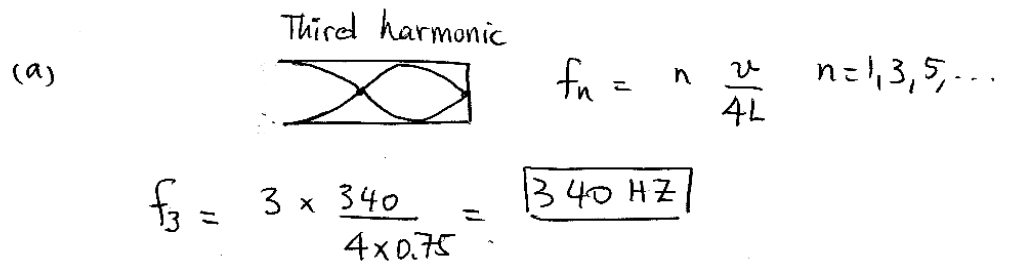 Third harmonic
(a) fn = n v/4L n=1,3,5,...
f3 = 3 x 340/4x0.75 = 340 HZ